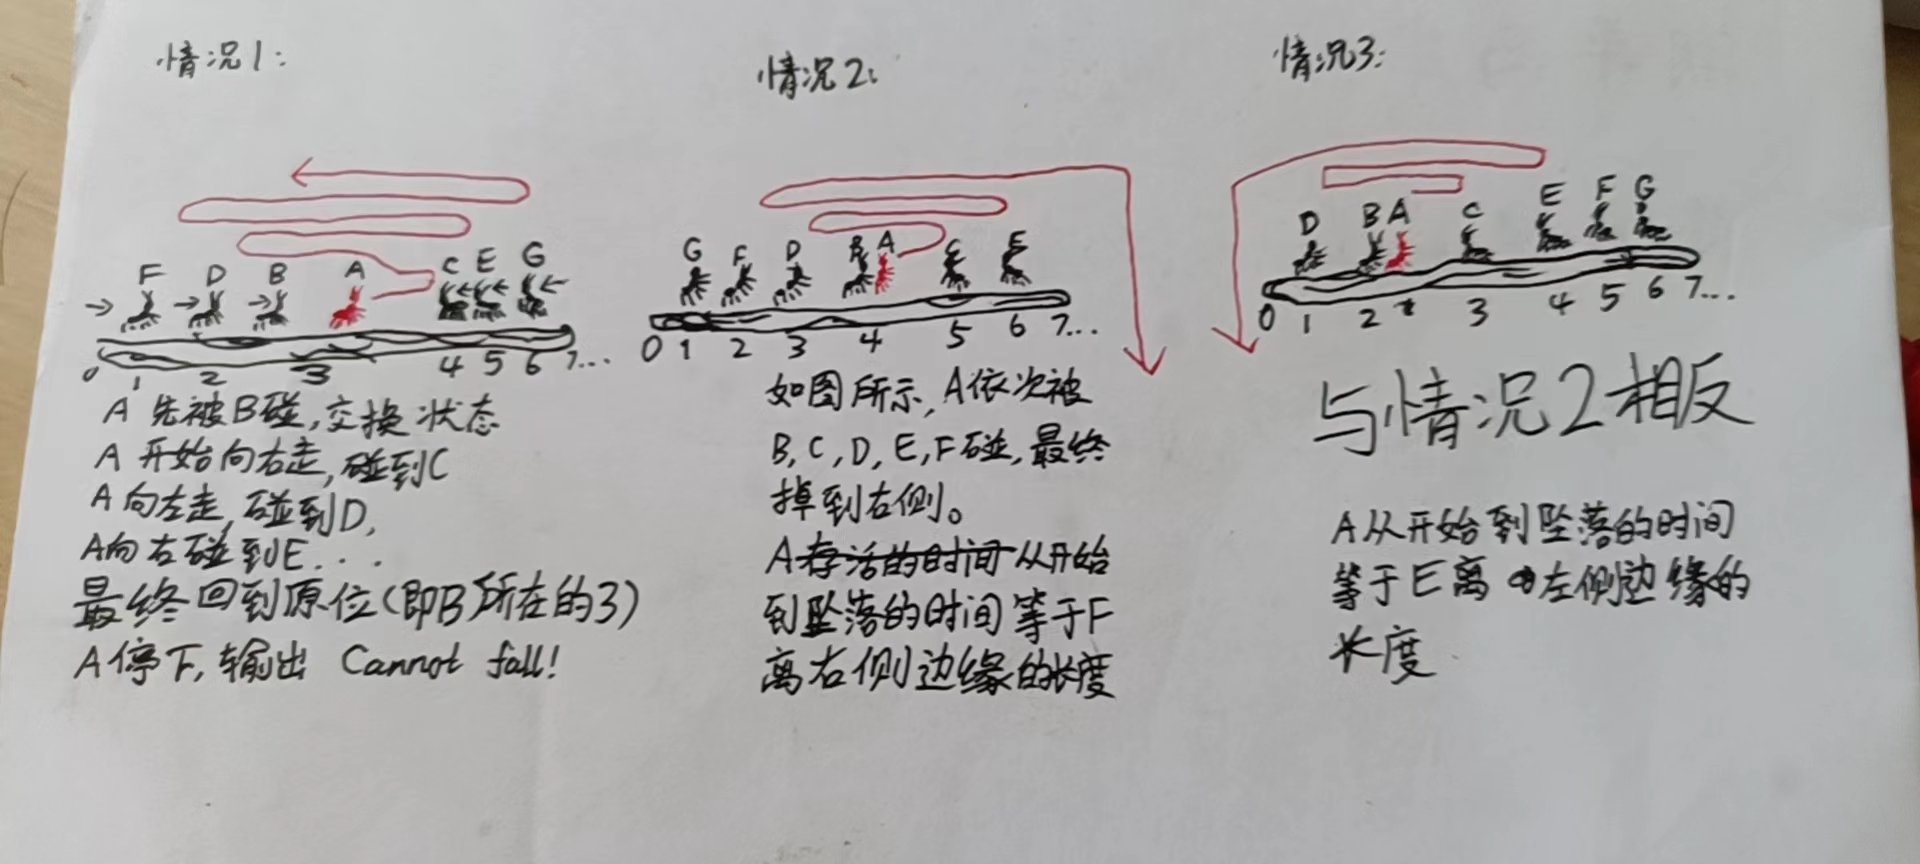 情况1:
F D B A C E G
0 1 2 3 4 5 6 7...
A 先被B碰,交换状态
A 开始向右走,碰到C
A向左走,碰到D,
A向右碰到E...
最终回到原位(即B所在的3)
A停下,输出 Cannot fall!
情况2:
G F D B A C E
0 1 2 3 4 5 6 7...
如图所示,A依次被
B,C,D,E,F碰,最终
掉到右侧。
A存活的时间从开始
到坠落的时间等于F
离右侧边缘的长度
情况3:
D B A C E F G
0 1 2 3 4 5 6 7...
与情况2相反
A从开始到坠落的时间
等于E离左侧边缘的
长度